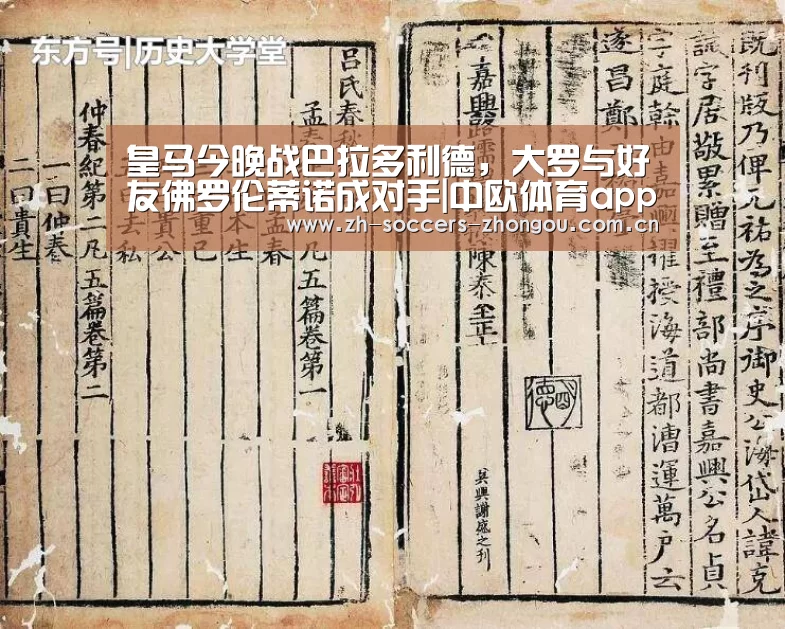 东方号|历史大学堂
皇马今晚战巴拉多利德，大罗与好
友佛罗伦蒂诺成对手|中欧体育app
www.zh-soccers-zhongou.com.cn
既刋版乃俾元祐為之序御史公海岱人諱克
誠字居敬累贈至禮部尚書嘉興公名貞
字庭幹由嘉興擢授海道都漕運萬户云
遂昌鄭
嘉興路儒
陳泰至正
吴興謝盛之刊
吕氏春秋
孟春
凡五篇卷第一
孟春
本生
重己
貴公
去私
仲春紀第二凡五篇卷第二
一曰仲春
二曰貴生